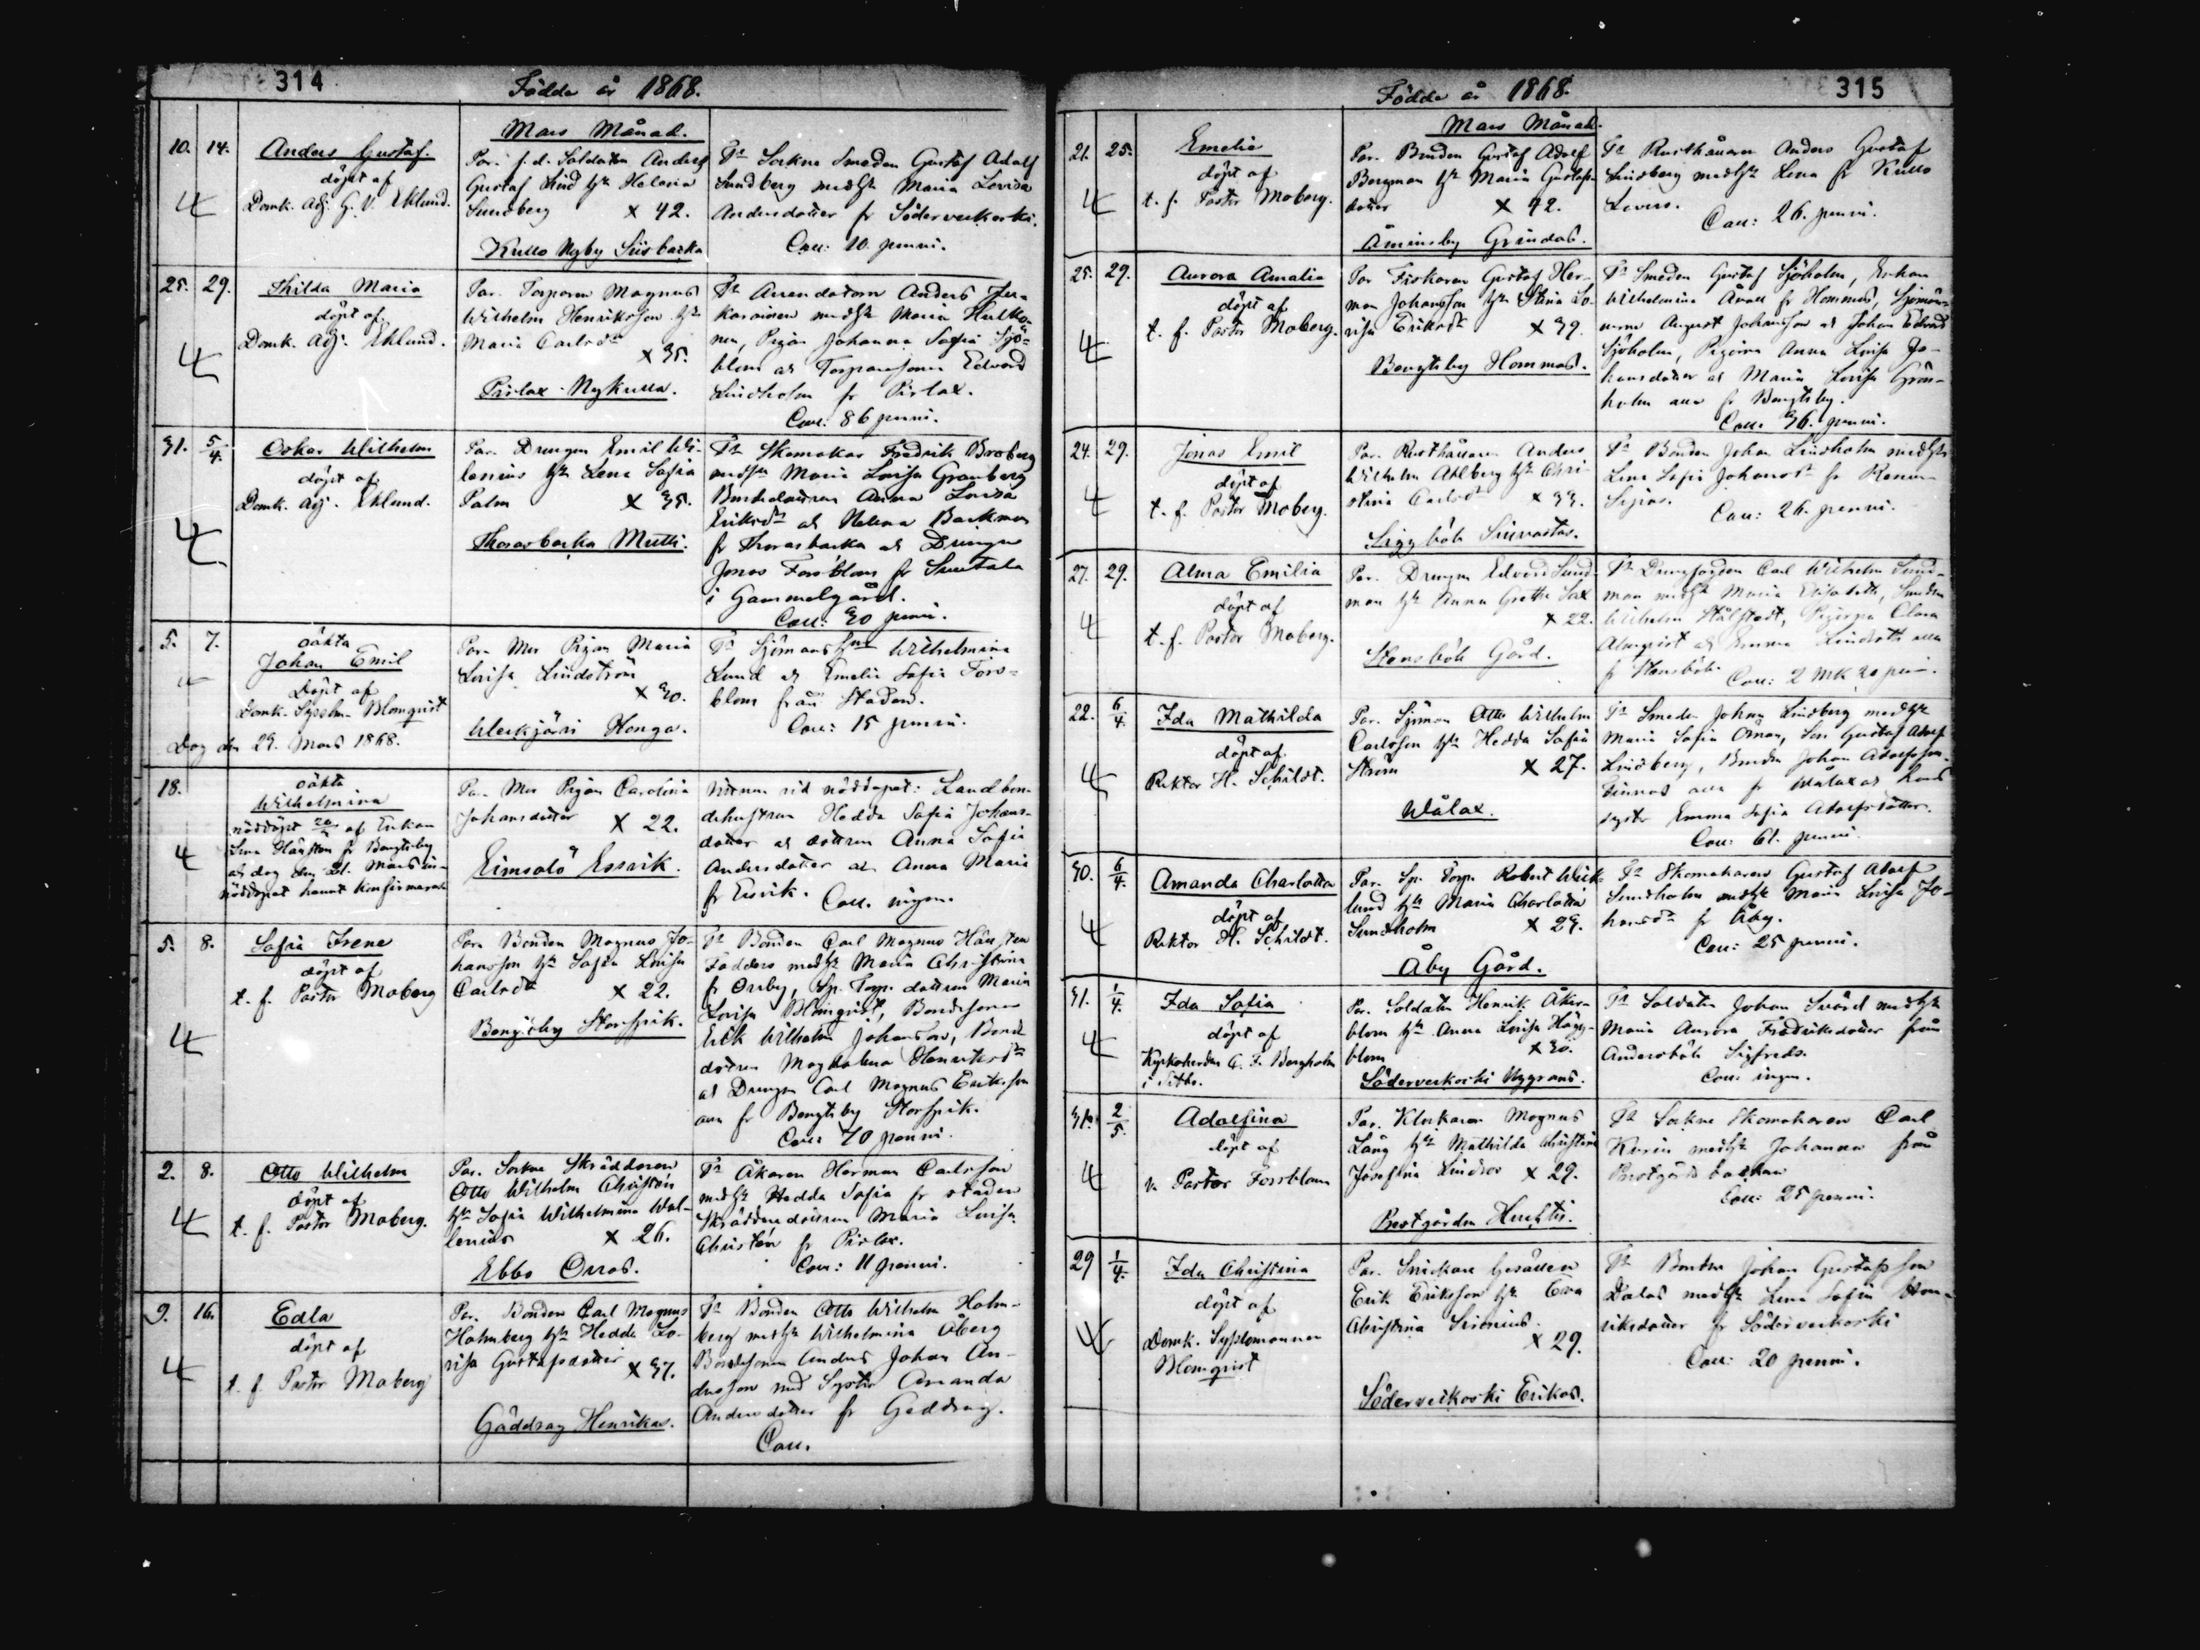 314
Födde år 1868.
Mars Månad.
10. 14. Anders Gustaf.
döpt af
Domk. Adj. G. V. Eklund.
Par. f.d. Soldaten Anders
Gustaf Lind hu Helena
Sundberg x 42.
Kullo Nyby
Fr Sockne Smeden Gustaf Adolf
Sundberg med hu Maria Lovisa
Andersdotter fr Söderveckoski.
Coll: 10 penni.
25. 29. Thilda Maria
döpt af
Domk. Adj. Eklund.
Par. Torparen Magnus
Wilhelm Henriksson hu
Maria Carlsdr
x 35.
Pirlax Nykulla.
Fr Arrendatorn Anders
med hu Maria
nen, Pigan Johanna Sofia Sjö-
blom och Torparesonen Edvard
Lindholm fr Pirlax.
Coll: 86 penni.
31. 5/4. Oskar Wilhelm
döpt af
Domk. Adj. Eklund.
Par. Drengen Emil
hu Lena Sofia
Palm x 35.
Thorasbacka Mutti.
Fr Skomakar Fredrik Broberg
med hu Maria Lovisa Granberg
Anna Lovisa
Eriksdr och Helena Backman
fr Thorasbacka och Drengen
Jonas Forsblom fr
i Gammelgård.
Coll: 30 penni.
5. 7. oäkta
Johan Emil
Döpt af
Domk. Sysslm. Blomqvist
Dog den 29. Mars 1868.
Par. Mor Pigan Maria
Lovisa Lindström
x 30.
Werkjärvi Honga.
Fr Sjömans Wilhelmina
Lund och Emelie Sofia Fors-
blom från Staden.
Coll: 15 penni.
18. oäkta
Wilhelmina
nöddöpt af Enkan
Lena fr Bengtsby
och dog den 21. Mars
nöddopet hunnit konfirmeras
Par. Mor Pigan Carolina
Johansdotter x 22.
Emsalö Essvik.
Vittnen vid nöddopet: Landbon-
dehustrun Hedda Sofia Johans-
dotter och dottren Anna Sofia
Andersdotter och Anna Maria
fr Essvik. Coll. ingen.
5. 8. Sofia Irene
döpt af
t. f. Pastor Moberg
Par. Bonden Magnus Jo-
hansson hu Sofia Lovisa
Carlsdr x 22.
Bengtsby Storspik.
Fr Bonden Carl Magnus
Fadders med hu Maria Christina
fr Orrby, Sp. Torp. dottren Maria
Lovisa Blomqvist, Bondesonen
Erik Wilhelm Johansson, Bond
dottren Magdalena Henriksdr
och Drengen Carl Magnus Eriksson
alla fr Bengtsby Storspik.
Coll: 70 penni.
2. 8. Otto Wilhelm
döpt af
t. f. Pastor Moberg.
Par. Sockne Skräddaren
Otto Wilhelm Christén
hu Sofia Wilhelmina Wal-
lenius x 26.
Ebbo Orras.
Fr Åkaren Herman Carlsson
med hu Hedda Sofia fr staden
Skräddaredottren Maria Lovisa
Christén fr Pirlax.
Coll: 11 penni.
9. 16. Edla
döpt af
t. f. Pastor Moberg
Par. Bonden Carl Magnus
Holmberg hu Hedda Lo-
visa Gustafsdotter x 37.
Gäddrag Henrikas.
Fr Bonden Otto Wilhelm Holm-
berg med hu Wilhelmina Åberg
Bondesonen Anders Johan An-
dersson med Syster Amanda
Andersdotter fr Geddrag.
Coll.
315
Födde år 1868.
Mars Månad.
21. 25. Emelie
döpt af
t. f. Pastor Moberg.
Par. Bonden Gustaf Adolf
Bergman hu Maria Gustafs-
dotter x 42.
Åminsby Grindas.
Fr Rusthållaren Anders Gustaf
Lindberg med hu Lena fr Kullo
Coll: 26. penni.
25. 29. Aurora Amalia
döpt af
t. f. Pastor Moberg.
Par. Fiskaren Gustaf Her-
man Johansson hu Stina Lo-
visa Eriksdr x 39.
Bengtsby Hommas.
Fr Smeden Gustaf Sjöholm, Enkan
Wilhelmina fr Hommas, Sjömän-
nerne August Johansson och Johan Edvard
Sjöholm, Pigorna Anna Lovisa Jo-
hansdotter och Maria Lovisa Grön-
holm alla fr Bengtsby.
Coll: 36. penni.
24. 29. Jonas Emil
döpt af
t. f. Pastor Moberg.
Par. Rusthållaren Anders
Wilhelm Ahlberg hu Chri-
stina Carlsdr x 33.
Siggböle
Fr Bonden Johan Lindholm med hu
Lena Sofia Johansdr fr
Coll: 26. penni.
27. 29. Alma Emilia
döpt af
t. f. Pastor Moberg.
Par. Drengen Edvard Sund-
man hu Anna Gretha
x 22.
Stensböle Gård.
Fr Carl Wilhelm Sund-
man med hu Maria Elisabeth, Smeden
Wilhelm Stålstedt, Pigorna Clara
Almqvist och Emma Lindroth alla
fr Stensböle. Coll: 2 mk 20 penni.
22. 6/4. Ida Mathilda
döpt af
Rektor H. Schildt.
Par. Sjöman Otto Wilhelm
Carlsson hu Hedda Sofia
Ström x 27.
Wålax.
Fr Smeden Johan Lindberg med hu
Maria Sofia Öman, Gustaf Adolf
Lindberg, Bonden Johan Adolfsson
Finnas alla fr Wålax och hans
syster Emma Sofia Adolfsdotter.
Coll: 61. penni.
30. 6/4. Amanda Charlotta
döpt af
Rektor H. Schildt.
Par. Sp. Torp. Robert Wick-
lund hu Maria Charlotta
Sundholm x 29.
Åby Gård.
Fr Skomakaren Gustaf Adolf
Sundholm med hu Maria Lovisa Jo-
hansdr fr Åby.
Coll: 25 penni.
31. 1/4. Ida Sofia
döpt af
Kyrkoherden C. F. Bergholm
i Sibbo.
Par. Soldaten Henrik Åker-
blom hu Anna Lovisa Hägg-
blom x 30.
Söderveckoski Nygrans.
Fr Soldaten Johan Svärd med hu
Maria Aurora Fredriksdotter från
Andersböle Sigfreds.
Coll: ingen.
31. 2/5. Adolfina
döpt af
v. Pastor Forsblom
Par. Klockaren Magnus
Lång hu Mathilda Christina
Josefina Lindroos x 29.
Prestgården
Fr Sockne Skomakaren Carl
med hu Johanna från
Prestgårds backan
Coll: 25 penni.
29 1/4. Ida Christina
döpt af
Domk. Sysslomannen
Blomqvist
Par. Snickare Gesällen
Erik Eriksson hu Eva
Christina Sirenius.
x 29.
Söderveckoski Erikas.
Fr Bonden Johan Gustafsson
Dalas med hu Lena Sofia Hen-
riksdotter fr Söderveckoski
Coll: 20 penni.